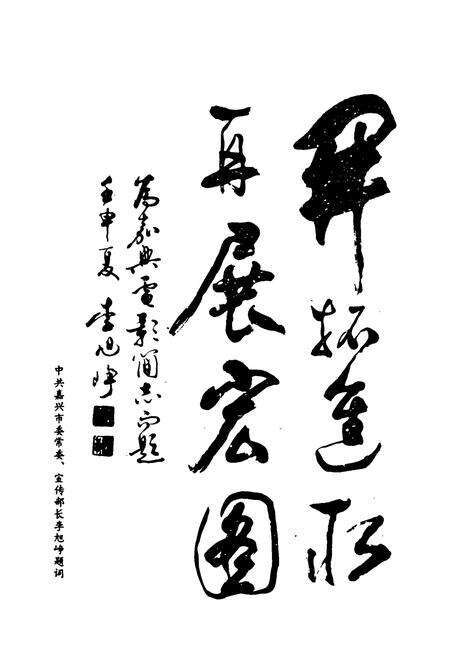 開拓進取
再展宏圖
為嘉興電影简志題
壬申夏 李旭峥
中共嘉兴市委常委、宣传部长李旭峥题词